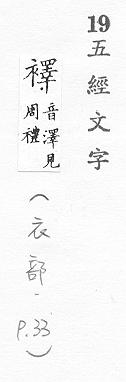 19五經文字
襗
音澤見
周禮
(衣部-P.33)